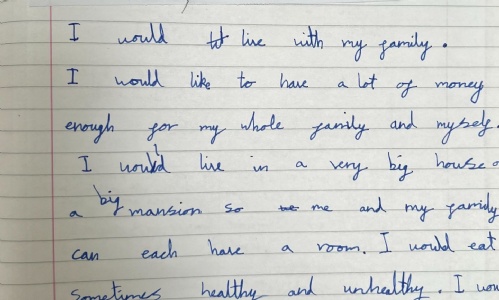 I would live with my family.
I would like to have a lot of money
enough for my whole family and myself.
I would live in a very big house
a big mansion so me and my family
can each have a room. I would eat
sometimes healthy and unhealthy. I